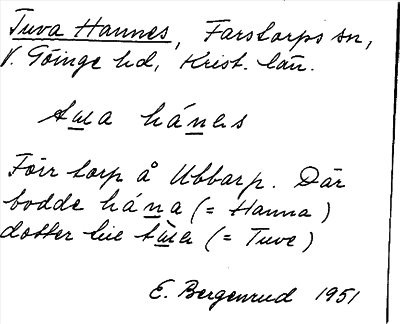 Tuva Hannes, Farstorps sn,
V. Göinge hd, Krist. län.
tu̲a há n̲es
För torp å Ubbarp. Där
bodde há n̲a (= Hanna)
dotter til tu̲e (= Tuve)
E. Bergenrud 1951